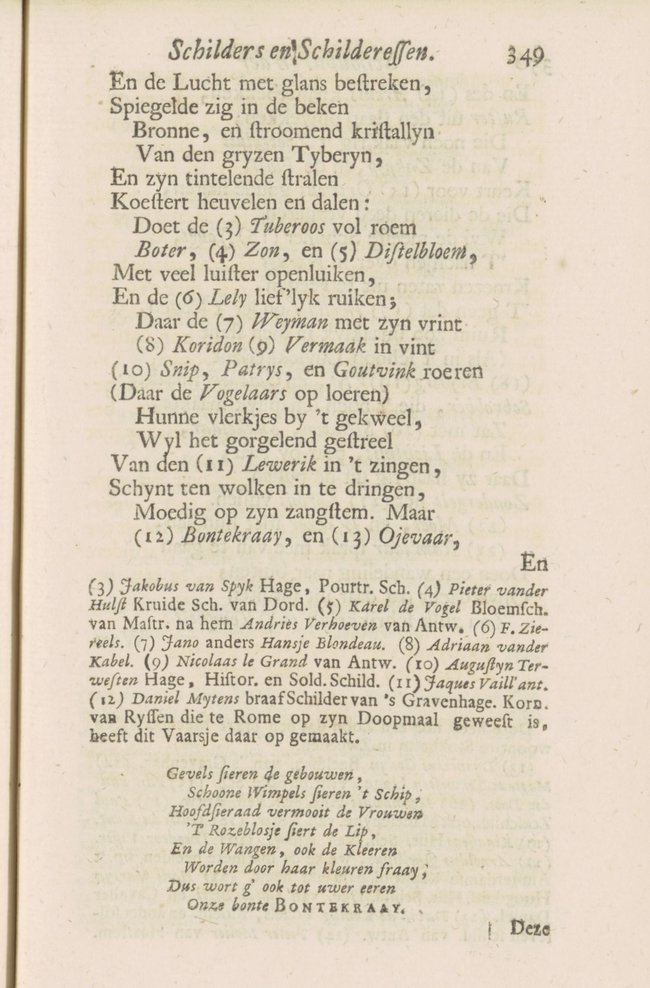 Schilders en Schilderessen. 349
En de Lucht met glans bestreken,
Spiegelde zig in de beken
Bronne, en stroomend kristallyn
Van den gryzen Tyberyn,
En zyn tintelende stralen
Koestert heuvelen en dalen:
Doet de (3) Tuberoos vol roem
Boter, (4) Zon, en (5) Distelbloem,
Met veel luister openluiken,
En de (6) Lely lief'lyk ruiken;
Daar de (7) Weyman met zyn vrint
(8) Koridon (9) Vermaak in vint
(10) Snip, Patrys, en Goutvink roeren
(Daar de Vogelaars op loeren)
Hunne vlerkjes by 't gekweel,
Wyl het gorgelend gestreel
Van den (11) Lewerik in 't zingen,
Schynt ten wolken in te dringen,
Moedig op zyn zangstem. Maar
(12) Bontekraay, en (13) Ojevaar,
En
(3) Jakobus van Spyk Hage, Pourtr. Sch. (4) Pieter vander
Hulst Kruide Sch. van Dord. (5) Karel de Vogel Bloemsch.
van Mastr. na hem Andries Verhoeven van Antw. (6) F. Zie-
reels. (7) Jano anders Hansje Blondeau. (8) Adriaan vander
Kabel. (9) Nicolaas le Grand van Antw. (10) Augustyn Ter-
westen Hage, Histor. en Sold. Schild. (11) Jaques Vaill'ant.
(12) Daniel Mytens braaf Schilder van 's Gravenhage. Korn.
van Ryssen die te Rome op zyn Doopmaal geweest is,
heeft dit Vaarsje daar op gemaakt.
Gevels sieren de gebouwen,
Schoone Wimpels sieren 't Schip,
Hoofdsieraad vermooit de Vrouwen
'T Rozeblosje siert de Lip,
En de Wangen, ook de Kleeren
Worden door haar kleuren fraay;
Dus wort g' ook tot uwer eeren
Onze bonte BONTEKRAAY.
Deze